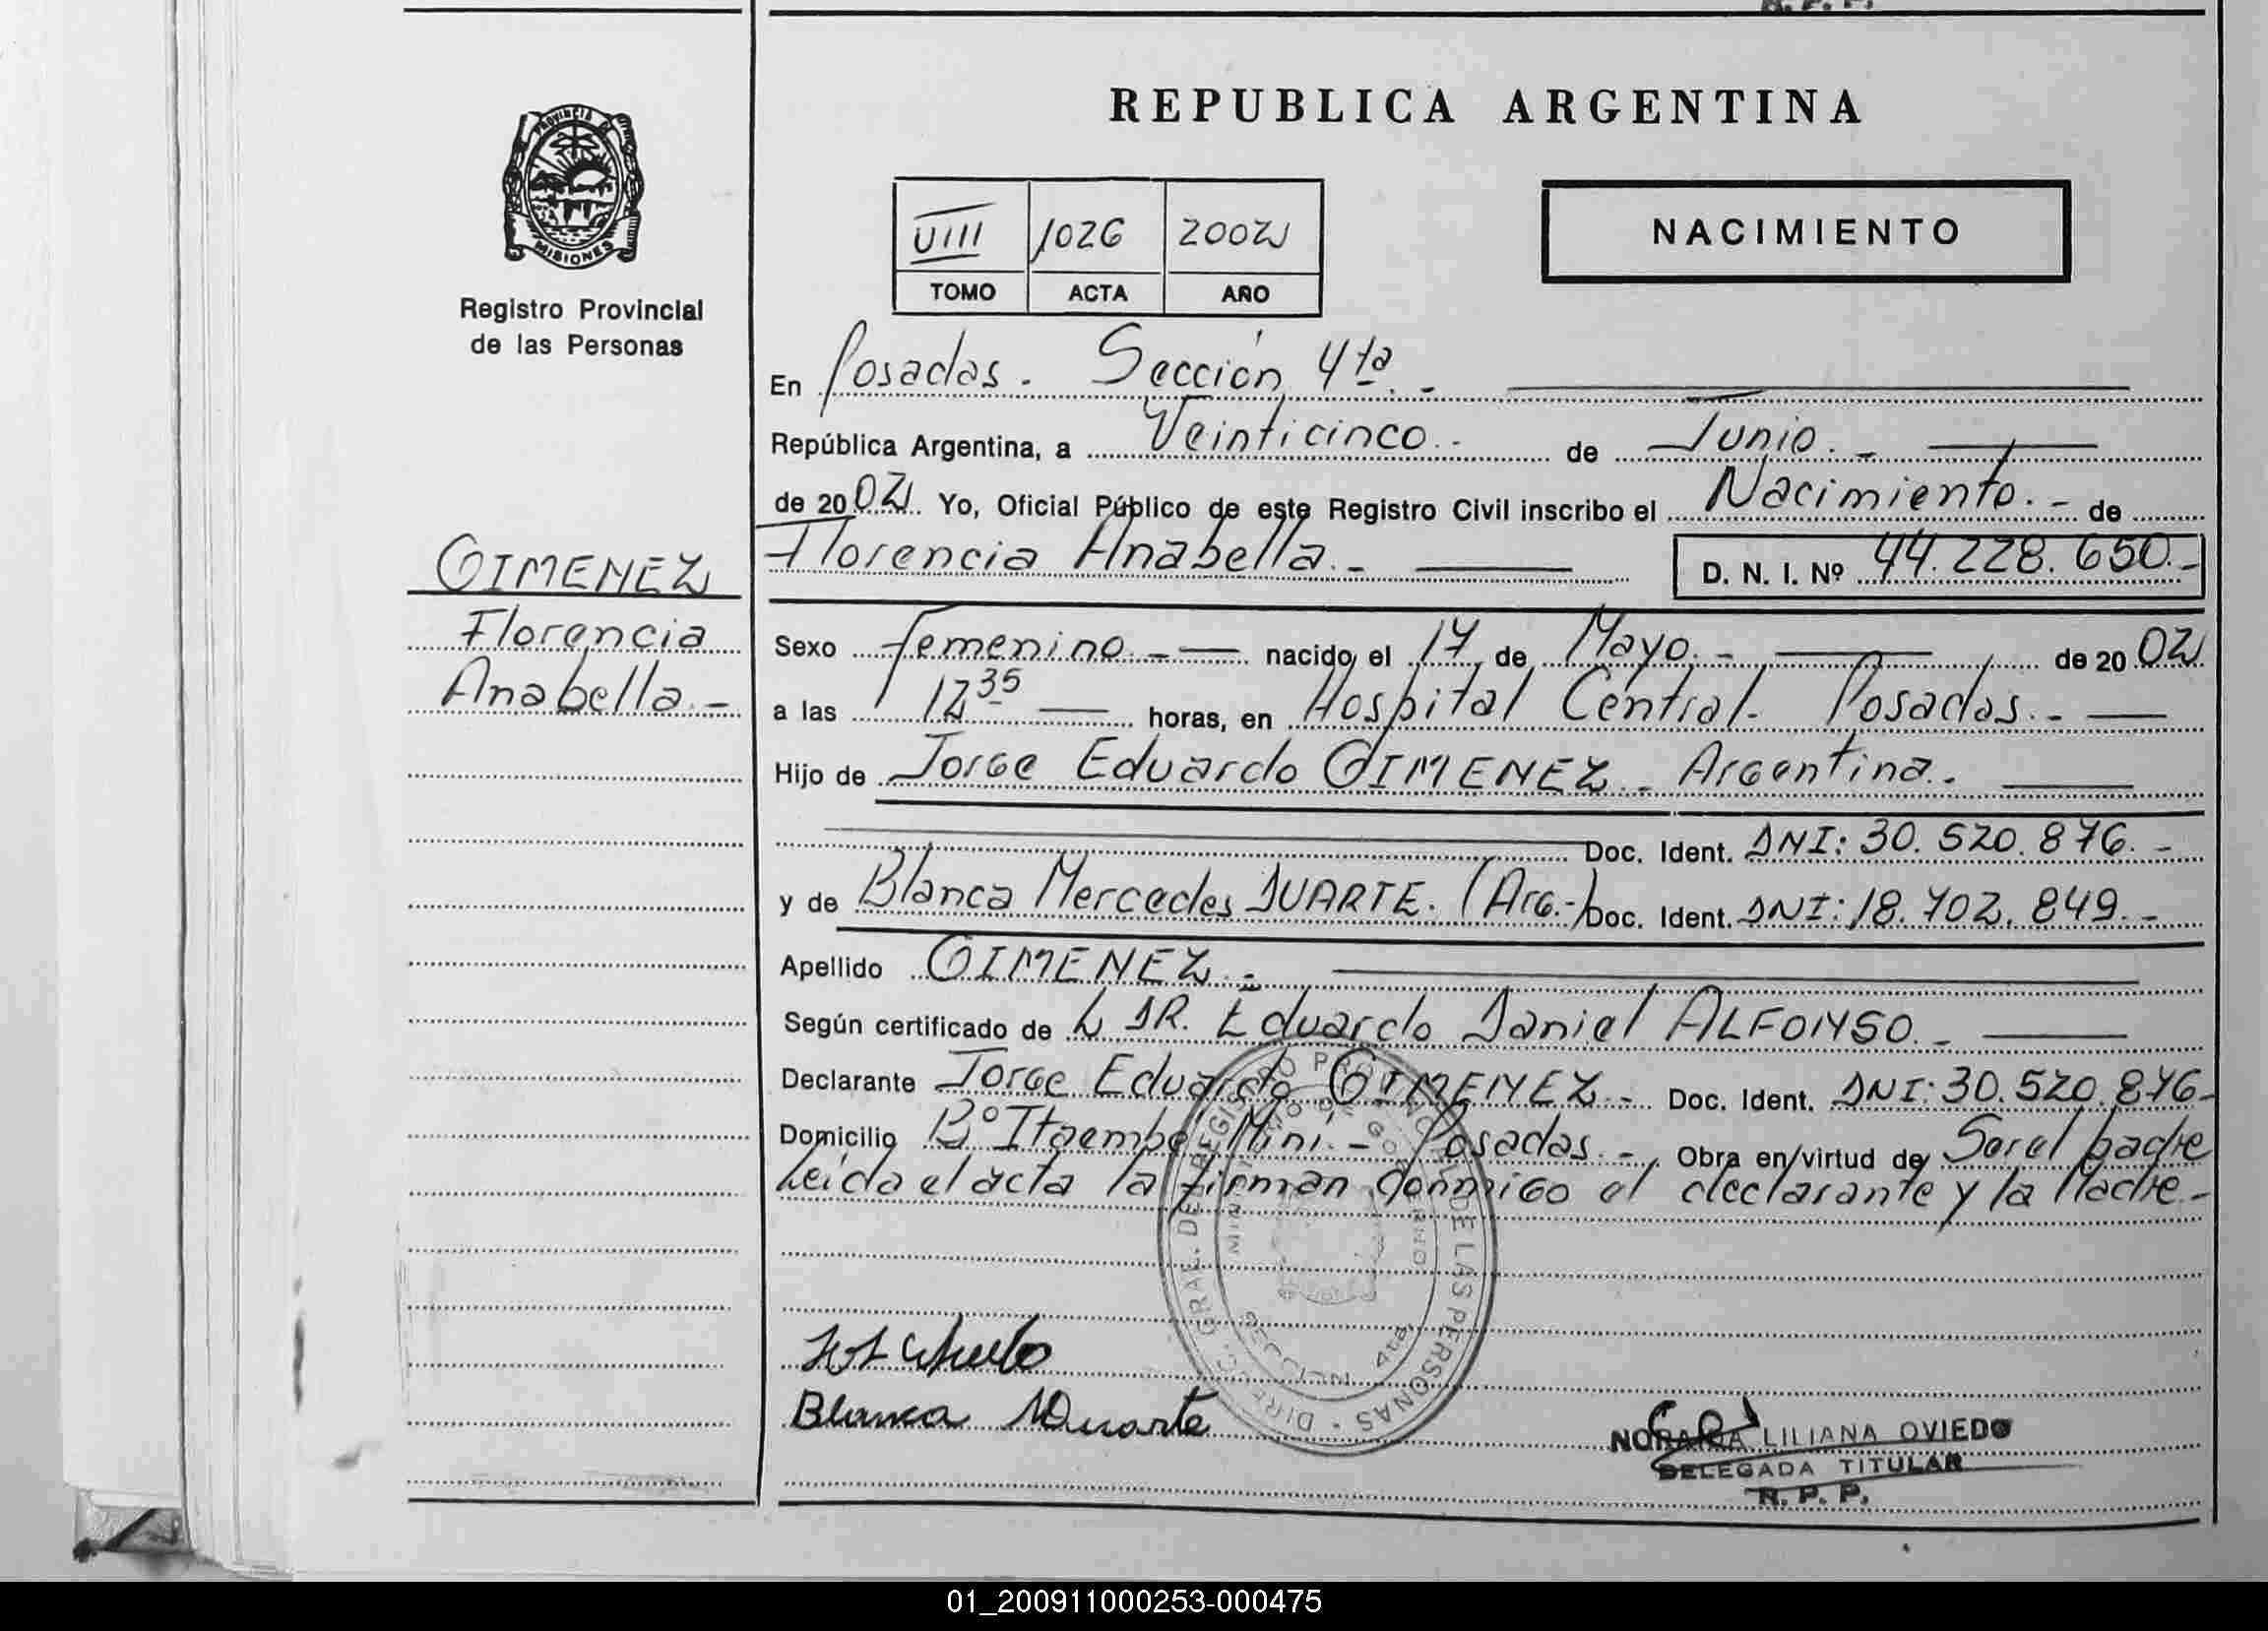 REPUBLICA ARGENTINA
PROVINCIA DE
MISIONES
Registro Provincial
de las Personas
VIII 1026 2002
TOMO ACTA AÑO
NACIMIENTO
En Posadas. Sección 4ta. -
República Argentina, a Veinticinco.- de Junio. -
de 2002. Yo, Oficial Público de este Registro Civil inscribo el Nacimiento. - de
Florencia Anabella. - D. N. I. Nº 44.228.650.-
GIMENEZ
Florencia
Anabella. -
Sexo Femenino. - nacido el 17 de Mayo. - de 2002
a las 12 35 horas, en Hospital Central. Posadas. -
Hijo de Jorge Eduardo GIMENEZ - Argentina.
Doc. Ident. DNI: 30.520.876. -
y de Blanca Mercedes DUARTE. (Arg.-) Doc. Ident. DNI: 18.702.849. -
Apellido GIMENEZ. -
Según certificado de L DR. Eduardo Daniel ALFONSO. -
Declarante Jorge Eduardo GIMENEZ - Doc. Ident. DNI: 30.520.876-
Domicilio Bº Itaembe Mini. - Posadas. - Obra en virtud de Ser el padre
Leída el acta la firman conmigo el declarante y la Madre -
DIREC. GRAL. DEL REGISTRO PROVINCIAL DE LAS PERSONAS
MINISTERIO DE GOBIERNO
SECCION 4ta.
Blanca M Duarte
LILIANA OVIEDO
DELEGADA TITULAR
R. P. P.
01_200911000253-000475